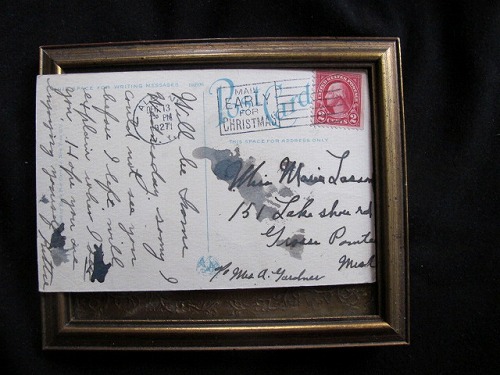 SPACE FOR WRITING MESSAGES
Will be home
Wednesday. Sorry I
could not see you
before I left, will
explain when I
you. Hope you are
enjoying
Post Card
MAIL
EARLY
FOR
CHRISTMAS
PM
1927
UNITED STATES POSTAGE
2 2
SPACE FOR ADDRESS ONLY
Miss
151 Lake shore rd
Grosse Pointe
Mich
c/o Mrs A. Gardner